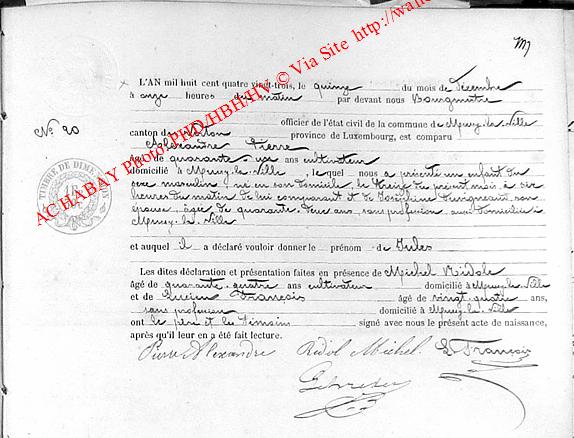 M
L'AN mil huit cent quatre vingt-trois, le quinze du mois de Décembre
à onze heures du matin par devant nous Bourgmestre
officier de l'état civil de la commune de Mussy-la-Ville
canton de Virton province de Luxembourg, est comparu
Alexandre Pierre
âgé de quarante un cultivateur
domicilié à Mussy-la-Ville lequel nous a présenté un enfant du
sexe masculin né en son domicile, le treize du présent mois à
heures du matin de lui comparant et de Joséphine son
épouse, âgée de quarante deux ans, sans profession aussi domiciliée à
Mussy-la-Ville
et auquel il a déclaré vouloir donner le prénom de Jules
Les dites déclaration et présentation faites en présence de Michel
âgé de quarante quatre ans cultivateur domicilié à Mussy-la-Ville
et de Lucien François âgé de vingt quatre ans,
sans profession domicilié à Mussy-la-Ville
ont le père et les témoins signé avec nous le présent acte de naissance,
après qu'il leur en a été fait lecture.
Pierre Alexandre Michel L. François
No 20
TIMBRE DE DIMENSION
AC HABAY Photo: PHD/HBH/HV © Via Site http://wa